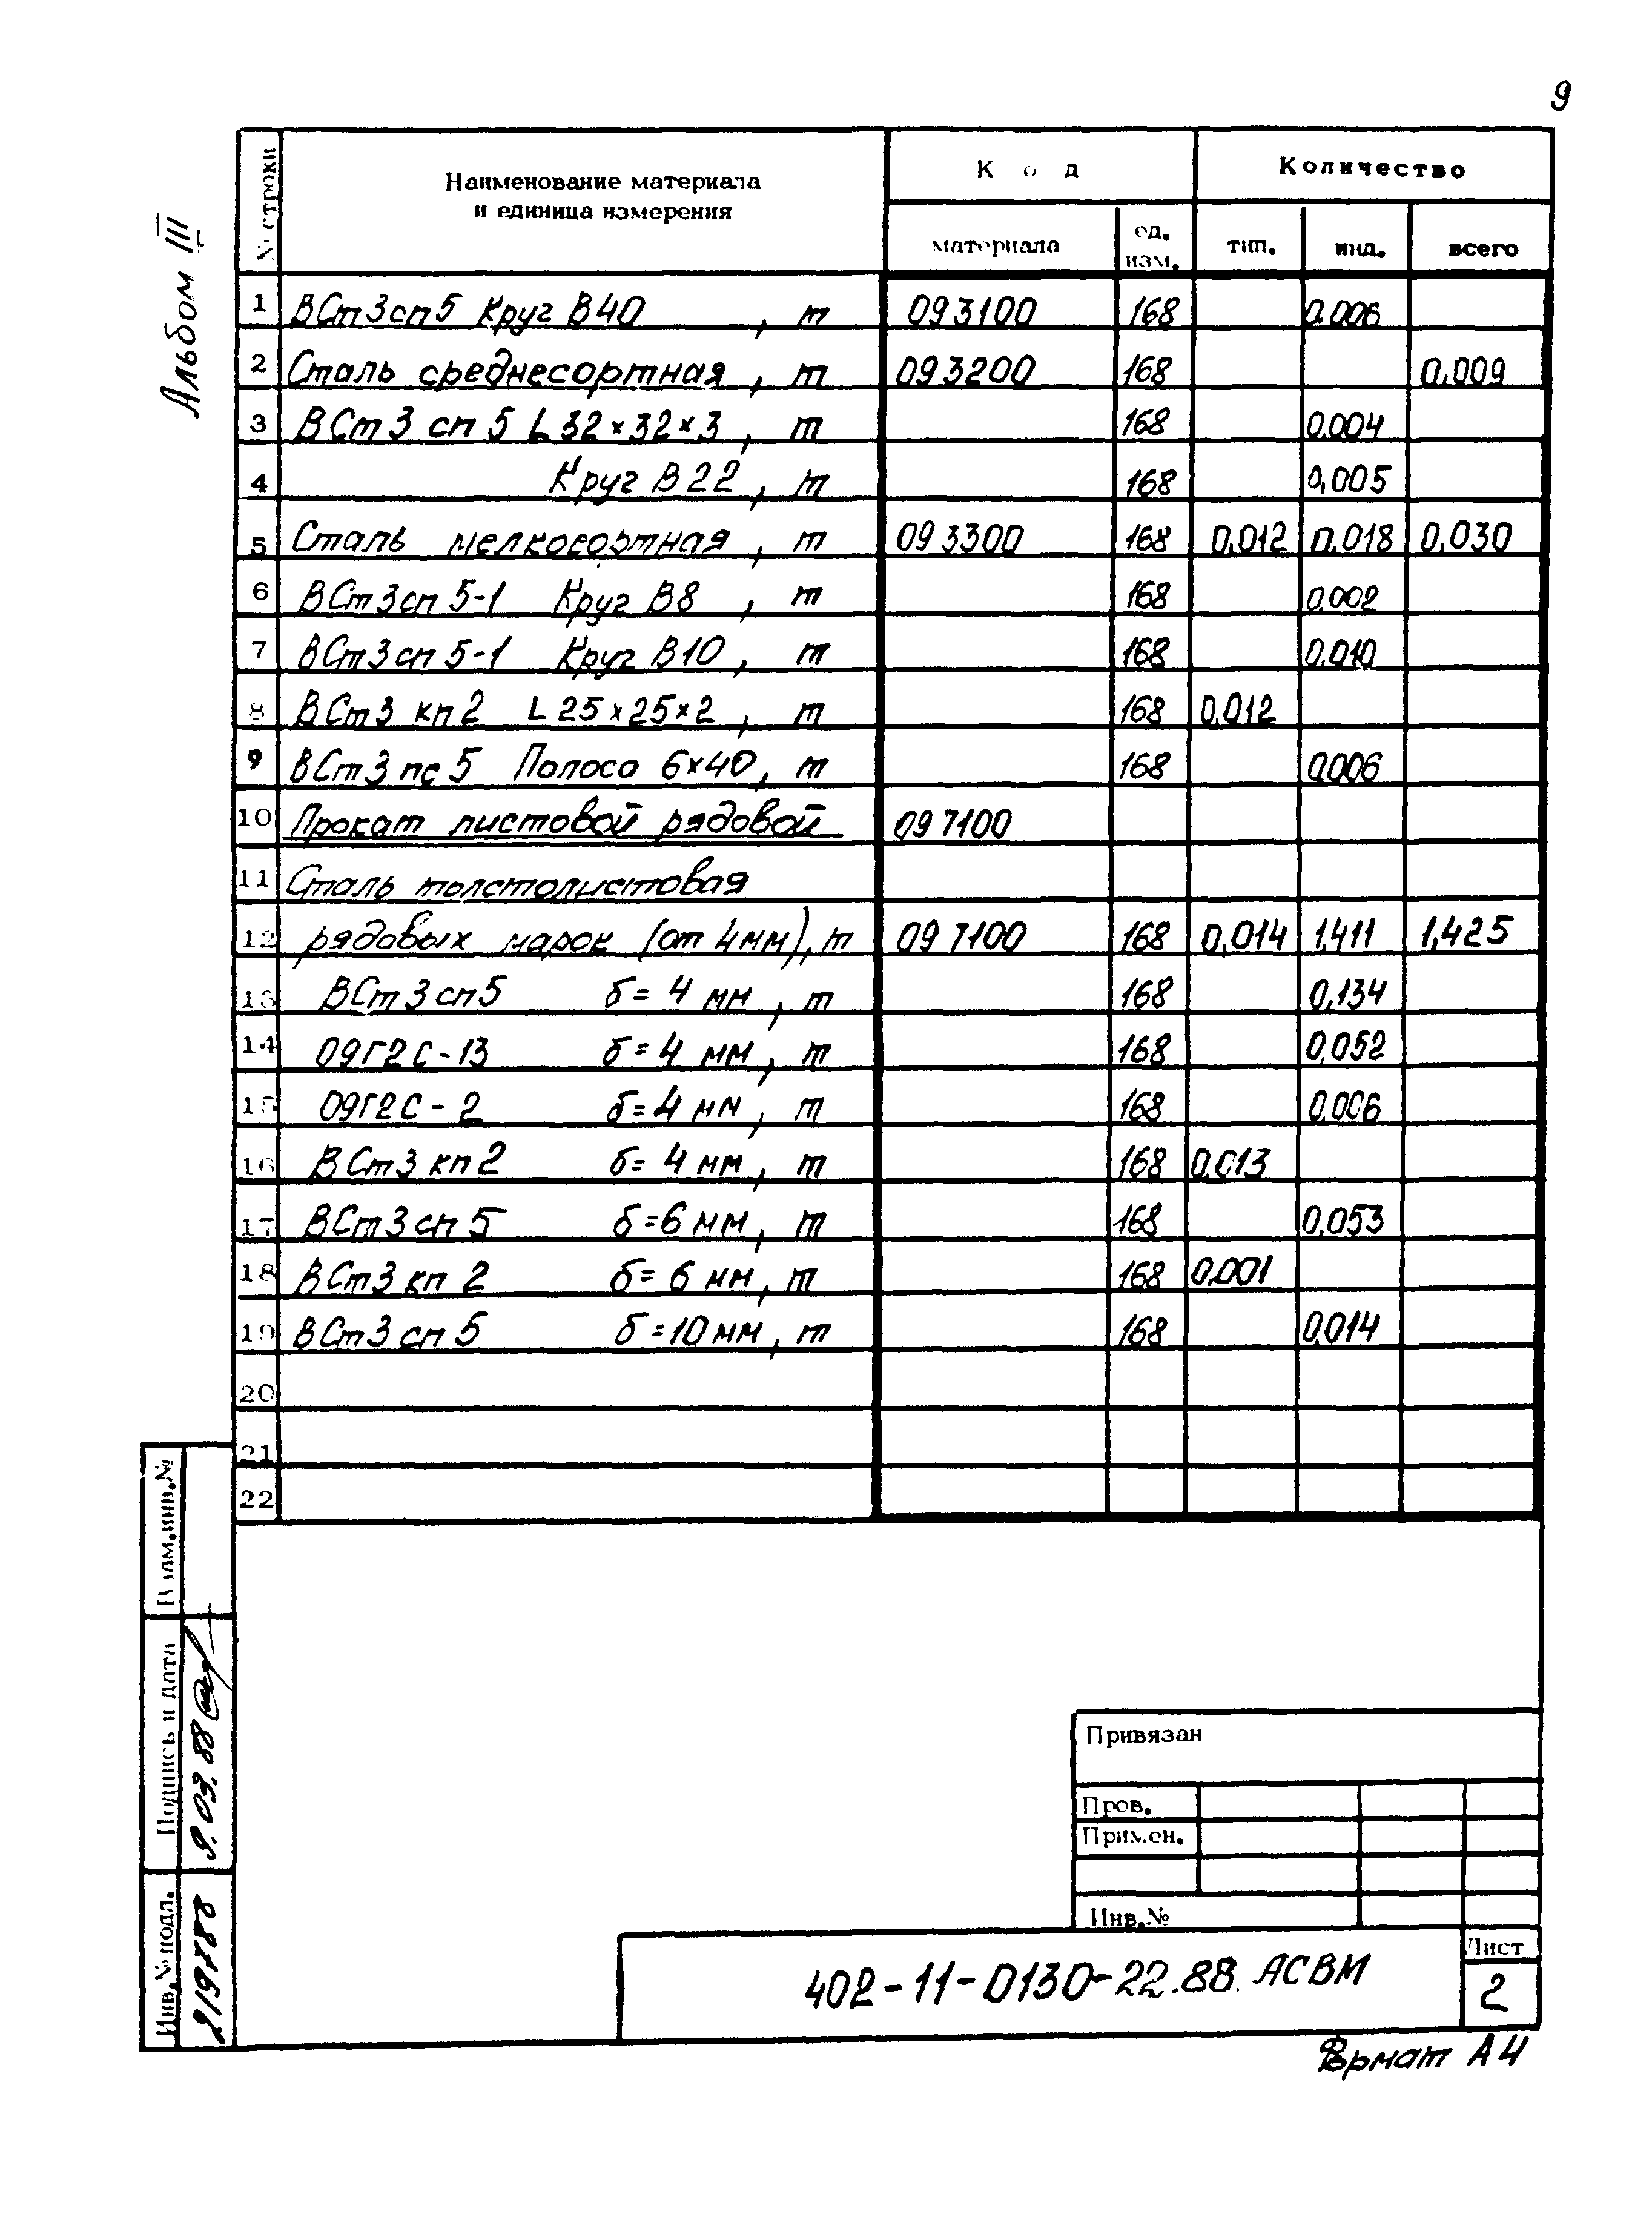 9
Альбом III
№ строки
Наименование материала
и единица измерения
Код
Количество
материала
ед. изм.
тип.
инд.
всего
1 ВСт3сп5 Круг В40, т 093100 168 0.006
2 Сталь среднесортная, т 093200 168 0,009
3 ВСт3 сп 5 L 32×32×3, т 168 0.004
4 Круг В22, т 168 0,005
5 Сталь мелкосортная, т 093300 168 0,012 0,018 0,030
6 ВСт3сп 5-1 Круг В8, т 168 0.002
7 ВСт3сп 5-1 Круг В10, т 168 0.010
8 ВСт3 кп2 L 25×25×2, т 168 0,012
9 ВСт3 пс 5 Полоса 6×40, т 168 0,006
10 Прокат листовой рядовой 097100
11 Сталь толстолистовая
12 рядовых марок (от 4мм), т 097100 168 0,014 1,411 1,425
13 ВСт3сп5 б= 4 мм, т 168 0,134
14 09Г2С-13 б= 4 мм, т 168 0,052
15 09Г2С-2 б=4 мм, т 168 0,006
16 ВСт3 кп2 б= 4 мм, т 168 0,013
17 ВСт3 сп 5 б=6 мм, т 168 0,053
18 ВСт3 кп 2 б= 6 мм, т 168 0,001
19 ВСт3 сп 5 б=10 мм, т 168 0,014
20
21
22
Взам.инв.№
Подпись и дата
9.03.88
Инв.№ подл.
Привязан
Пров.
Примен.
Инв.№
402-11-0130-22.88. АСВМ
Лист
2
Формат А4